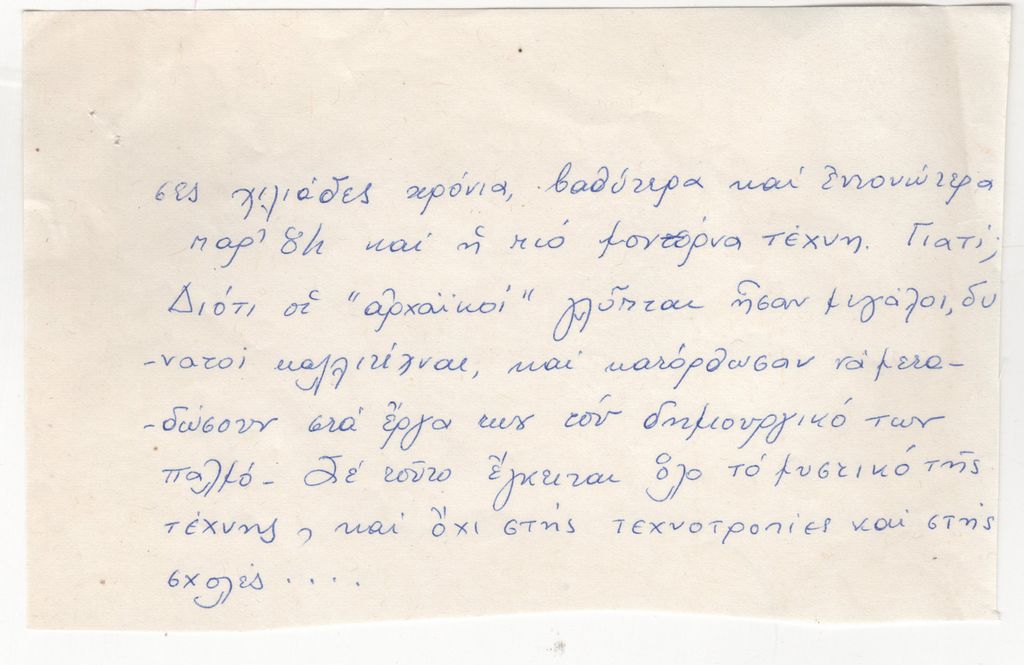 σες χιλιάδες χρόνια, βαθύτερα καί ἐντονώτερα
παρ' ὅτι καί ἡ πιό μοντέρνα τέχνη. Γιατί;
Διότι οἱ "ἀρχαϊκοί" γλύπται ἦσαν μεγάλοι, δυ
-νατοί καλλιτέχναι, καί κατόρθωσαν νά μετα-
-δώσουν στά ἔργα των τόν δημιουργικό των
παλμό - Σέ τοῦτο ἔγκειται ὅλο τό μυστικό τῆς
τέχνης, καί ὄχι στής τεχνοτροπίες καί στής
σχολές ....